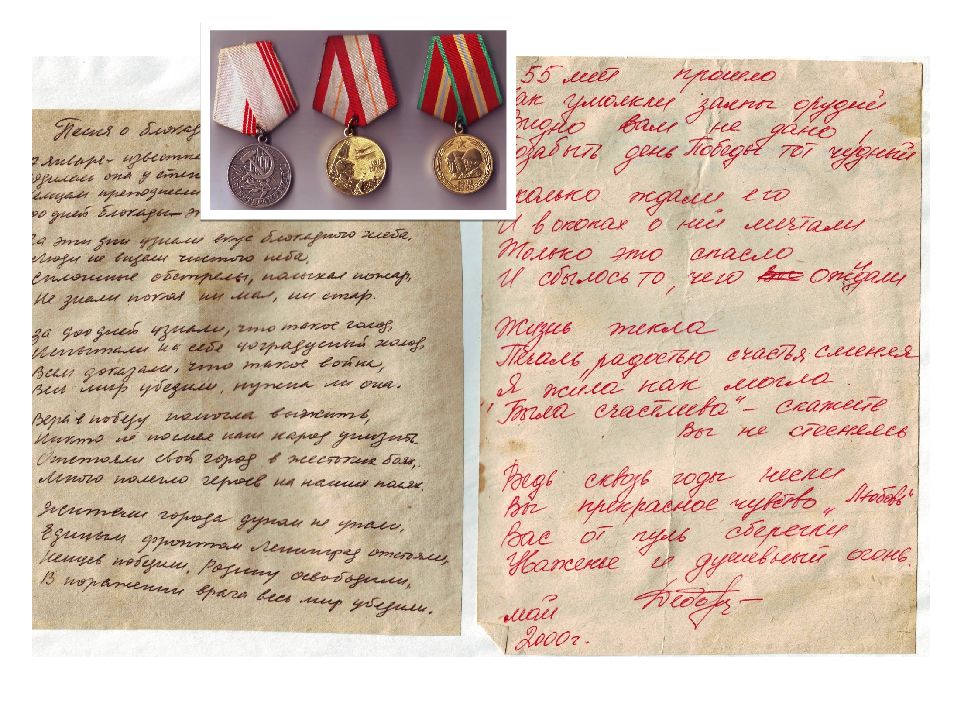 Песня о блокад
января известна
дилась она у стен
преподнесли
дней блокады
За эти дни узнали вкус блокадного хлеба,
Люди не видели чистого неба,
Сплошные обстрелы, полыхал пожар,
Не знали покоя ни мал, ни стар.
За 900 дней узнали, что такое голод,
Испытали на себе 40градусный холод,
Всем доказали, что такое война,
Весь мир убедили, нужна ли она.
Вера в победу помогла выжить,
Никто не посмел наш народ унизить.
Отстояли свой город в жестоких боях,
Много полегло героев на наших полях.
Жители города духом не упали,
Единым фронтом Ленинград отстояли,
Немцев победили. Родину освободили,
В поражении врага весь мир убедили.
55 лет прошло
Как умолкли залпы орудий,
Видно вам не дано,
Позабыть день Победы тот чудный
Сколько ждали его
И в окопах о ней мечтали
Только это спасло
И сбылось то, чего ожидали
Жизнь текла
Печаль, радостью счастья сменяя
Я жила как могла
"Была счастлива" – скажете
Вы не стесняясь
Ведь сквозь годы несли
Вы прекрасное чувство "Любовь"
Вас от пуль сберегли
Уваженье и душевный огонь.
май
2000г.